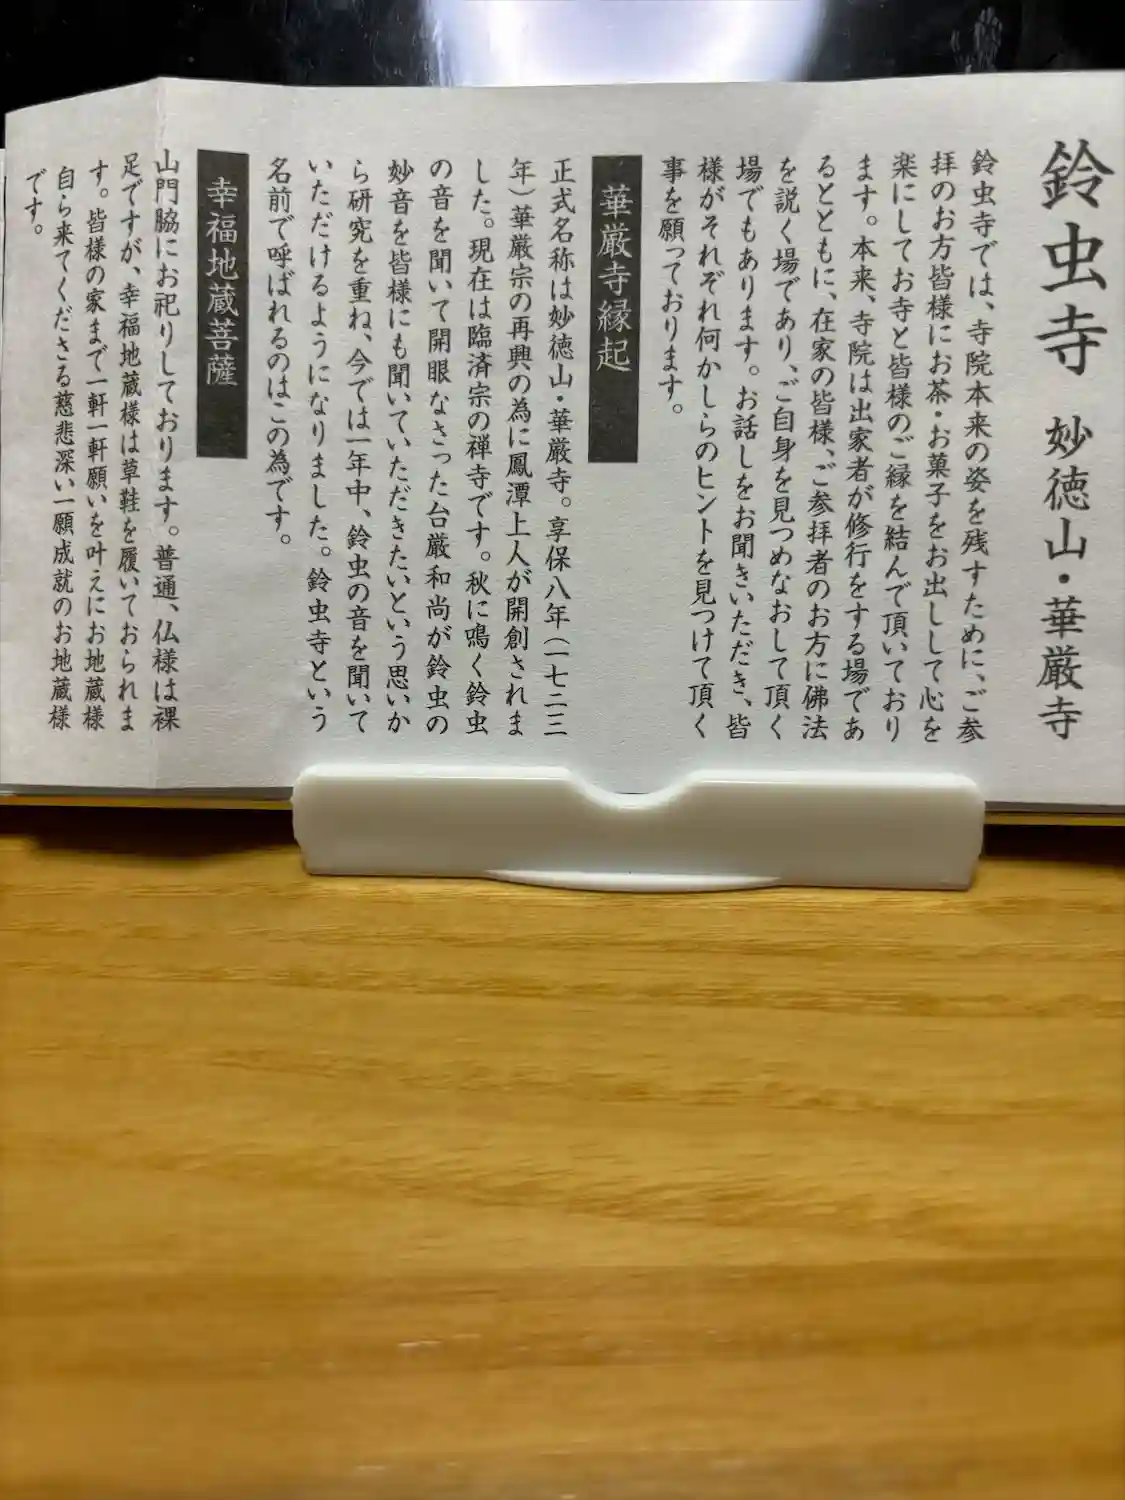 鈴虫寺 妙徳山・華厳寺
鈴虫寺では、寺院本来の姿を残すために、ご参
拝のお方皆様にお茶・お菓子をお出しして心を
楽にしてお寺と皆様のご縁を結んで頂いており
ます。本来、寺院は出家者が修行をする場であ
るとともに、在家の皆様、ご参拝者のお方に佛法
を説く場であり、ご自身を見つめなおして頂く
場でもあります。お話しをお聞きいただき、皆
様がそれぞれ何かしらのヒントを見つけて頂く
事を願っております。
華厳寺縁起
正式名称は妙徳山・華厳寺。享保八年(一七二三
年)華厳宗の再興の為に鳳潭上人が開創されま
した。現在は臨済宗の禅寺です。秋に鳴く鈴虫
の音を聞いて開眼なさった台厳和尚が鈴虫の
妙音を皆様にも聞いていただきたいという思いか
ら研究を重ね、今では一年中、鈴虫の音を聞いて
いただけるようになりました。鈴虫寺という
名前で呼ばれるのはこの為です。
幸福地蔵菩薩
山門脇にお祀りしております。普通、仏様は裸
足ですが、幸福地蔵様は草鞋を履いておられま
す。皆様の家まで一軒一軒願いを叶えにお地蔵様
自ら来てくださる慈悲深い一願成就のお地蔵様
です。